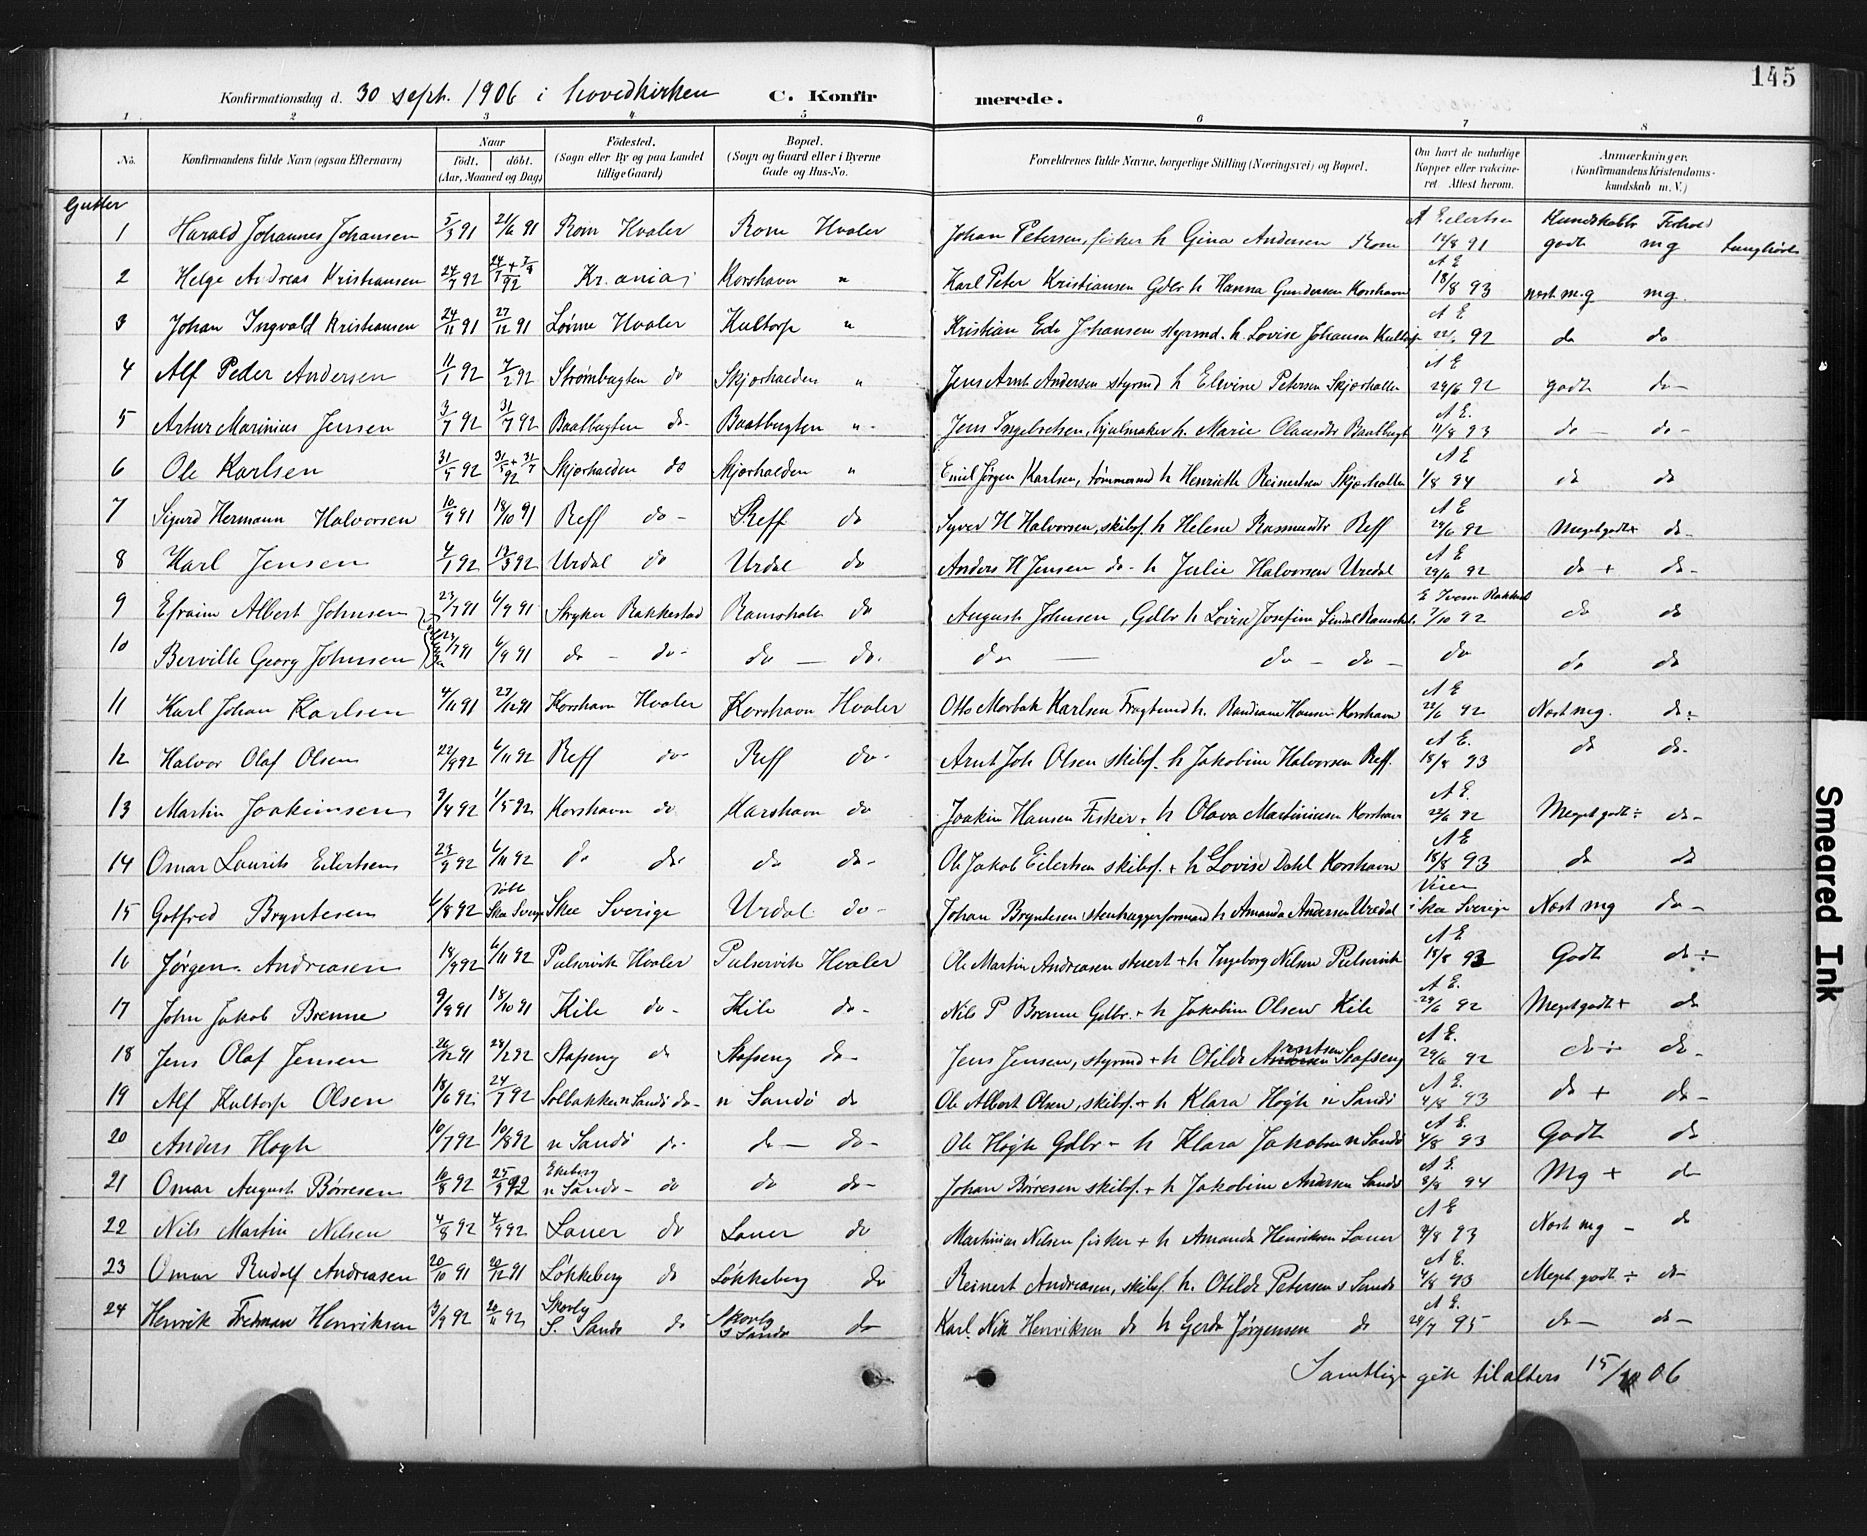 145
Konfirmationsdag d. 30 sept. 1906 i hovedkirken C. Konfirmerede.
1 2 3 4 5 6 7 8
No. Konfirmandens fulde Navn (ogsaa Efternavn) Naar født. døbt. (Aar, Maaned og Dag) Fødested. (Sogn eller By og paa Landet tillige Gaard) Bopæl. (Sogn og Gaard eller i Byerne Gade og Hus-No. Forældrenes fulde Navne, borgerlige Stilling (Næringsvei) og Bopæl. Om havt de naturlige Kopper eller vakcineret. Attest herom. Anmærkninger. (Konfirmandens Kristendomskundskab m. V.)
Gutter
1 Harald Johannes Johansen 5/3 91 21/6 91 Rom Hvaler Rom Hvaler Johan Petersen, fisker h Gina Andersen Rom A Eilertsen 12/8 91 Kundskab Forhold godt mg
2 Helge Andreas Kristiansen 24/7 92 Kr.ania Korshavn " Karl Peter Kristiansen Gdbr h Hanna Gundersen Korshavn A E 18/8 93 Næst mg mg.
3 Johan Ingvald Kristiansen 24/11 91 27/12 91 Løvne Hvaler Kultorp " Kristian Edv Johansen styrmd. h Lovise Johansen Kultorp A E 92 do do
4 Alf Peder Andersen 11/1 92 7/2 92 Strømbugten do Skjærhalden " Jens Arnt Andersen styrmd h Elvine Petersen Skjærhalden A E 29/6 92 godt do -
5 Artur Marinius Jensen 3/7 92 31/7 92 Baatbugten do - Baatbugten " - Jens Ingebretsen, hjulmaker h. Marie Olausdtr Baatbugt A E. 11/8 93 do - do -
6 Ole Karlsen 31/5 92 Skjærhalden do Skjærhalden " Emil Jørgen Karlsen, tømmermd h Henriette Reinertsen Skjærhalden A E 1/8 94 do do
7 Sigurd Hermann Halvorsen 10/9 91 18/10 91 Reff do - Reff do Syver H Halvorsen, skibsf. h Helene Rasmusdtr Reff A E 29/6 92 Meget godt + do -
8 Karl Jensen 4/1 92 13/3 92 Urdal do Urdal do Anders H Jensen do - h Julie Halvorsen Uredal A E 29/6 92 do + do -
9 Efraim Albert Johnsen 23/7 91 6/9 91 Stryken Rakkestad Ramshalm do August Johnsen, Gdbr h Lovise Josefine 7/10 92 do do
10 Berville Georg Johnsen 23/7 91 6/9 91 do - do - do - do - do - do - do - do do do
11 Karl Johan Karlsen 4/11 91 27/12 91 Korshavn Hvaler Korshavn Hvaler Otto Morbak Karlsen Fragtemd h. Randiane Hansen Korshavn A E 22/6 92 Næst mg. do ÷
12 Halvor Olaf Olsen 22/9 92 6/11 92 Reff do - Reff do - Arnt Joh Olsen skibsf. h Jakobine Halvorsen Reff A E. 18/8 93 do do -
13 Martin Joakimsen 3/4 92 1/5 92 Korshavn do Korshavn do Joakim Hansen Fisker + h Olava Martiniusen Korshavn A E. 22/6 92 Meget godt ÷ do -
14 Omar Laurits Eilertsen 23/9 92 6/11 92 do do - do do - Ole Jakob Eilertsen skibsf. + h Lovise Dahl Korshavn A E 18/8 93 do do
15 Gotfred Bryntesen 6/8 92 døbt Skee Sverige Skee Sverige Urdal do - Johan Bryntesen stenhuggerformand h Amanda Andersen Uredal i Skee Sverige Næst mg do -
16 Jørgen Andreasen 18/9 92 6/11 92 Pulservik Hvaler Pulservik Hvaler Ole Martin Andreasen stuert + h Ingeborg Nilsen Pulservik A E 18/8 93 Godt do ÷
17 John Jakob Brenne 9/9 91 18/10 91 Kile do - Kile do - Nils P Brenne Gdbr. + h Jakobine Olsen Kile A E. 29/6 92 Meget godt + do
18 Jens Olaf Jensen 26/12 91 28/2 92 Stafseng do Stafseng do - Jens Jensen, styrmd + h Otilde Arntsen Stafseng A E. 29/6 92 do ÷ do -
19 Alf Kultorp Olsen 18/6 92 24/7 92 Solbakken n Sandø do - n Sandø do Ole Albert Olsen, skibsf. + h Klara Høgh n Sandø A E. 4/8 93 do + do -
20 Anders Høgh 10/7 92 10/8 92 n Sandø do - do - do - Ole Høgh Gdbr - h Klara Jakobsen n Sandø A E. 4/8 93 Godt do
21 Omar August Børresen 10/8 92 25/9 92 Ekeberg n Sandø - do do do - Johan Børresen skibsf. + h Jakobine Andersen Sandø A E. 8/8 94 Mg + do
22 Nils Martin Nilsen 4/8 92 4/9 92 Lauer do Lauer do Martinius Nilsen fisker + h Amanda Henriksen Lauer A E 4/8 93 Næst mg - do
23 Omar Rudolf Andreasen 20/10 91 20/12 91 Løkkeberg do Løkkeberg do Reinert Andreasen, skibsf. h. Otilde Petersen s Sandø A E. 4/8 93 Meget godt ÷ do -
24 Henrik Fredman Henriksen 3/9 92 20/11 92 Skovby S. Sandø do Skovby S Sandø do Karl. Nik Henriksen do h Gerda Jørgensen do A E. 24/7 95 do - do -
Samtlige gik til alters 15/10 06
Smeared Ink